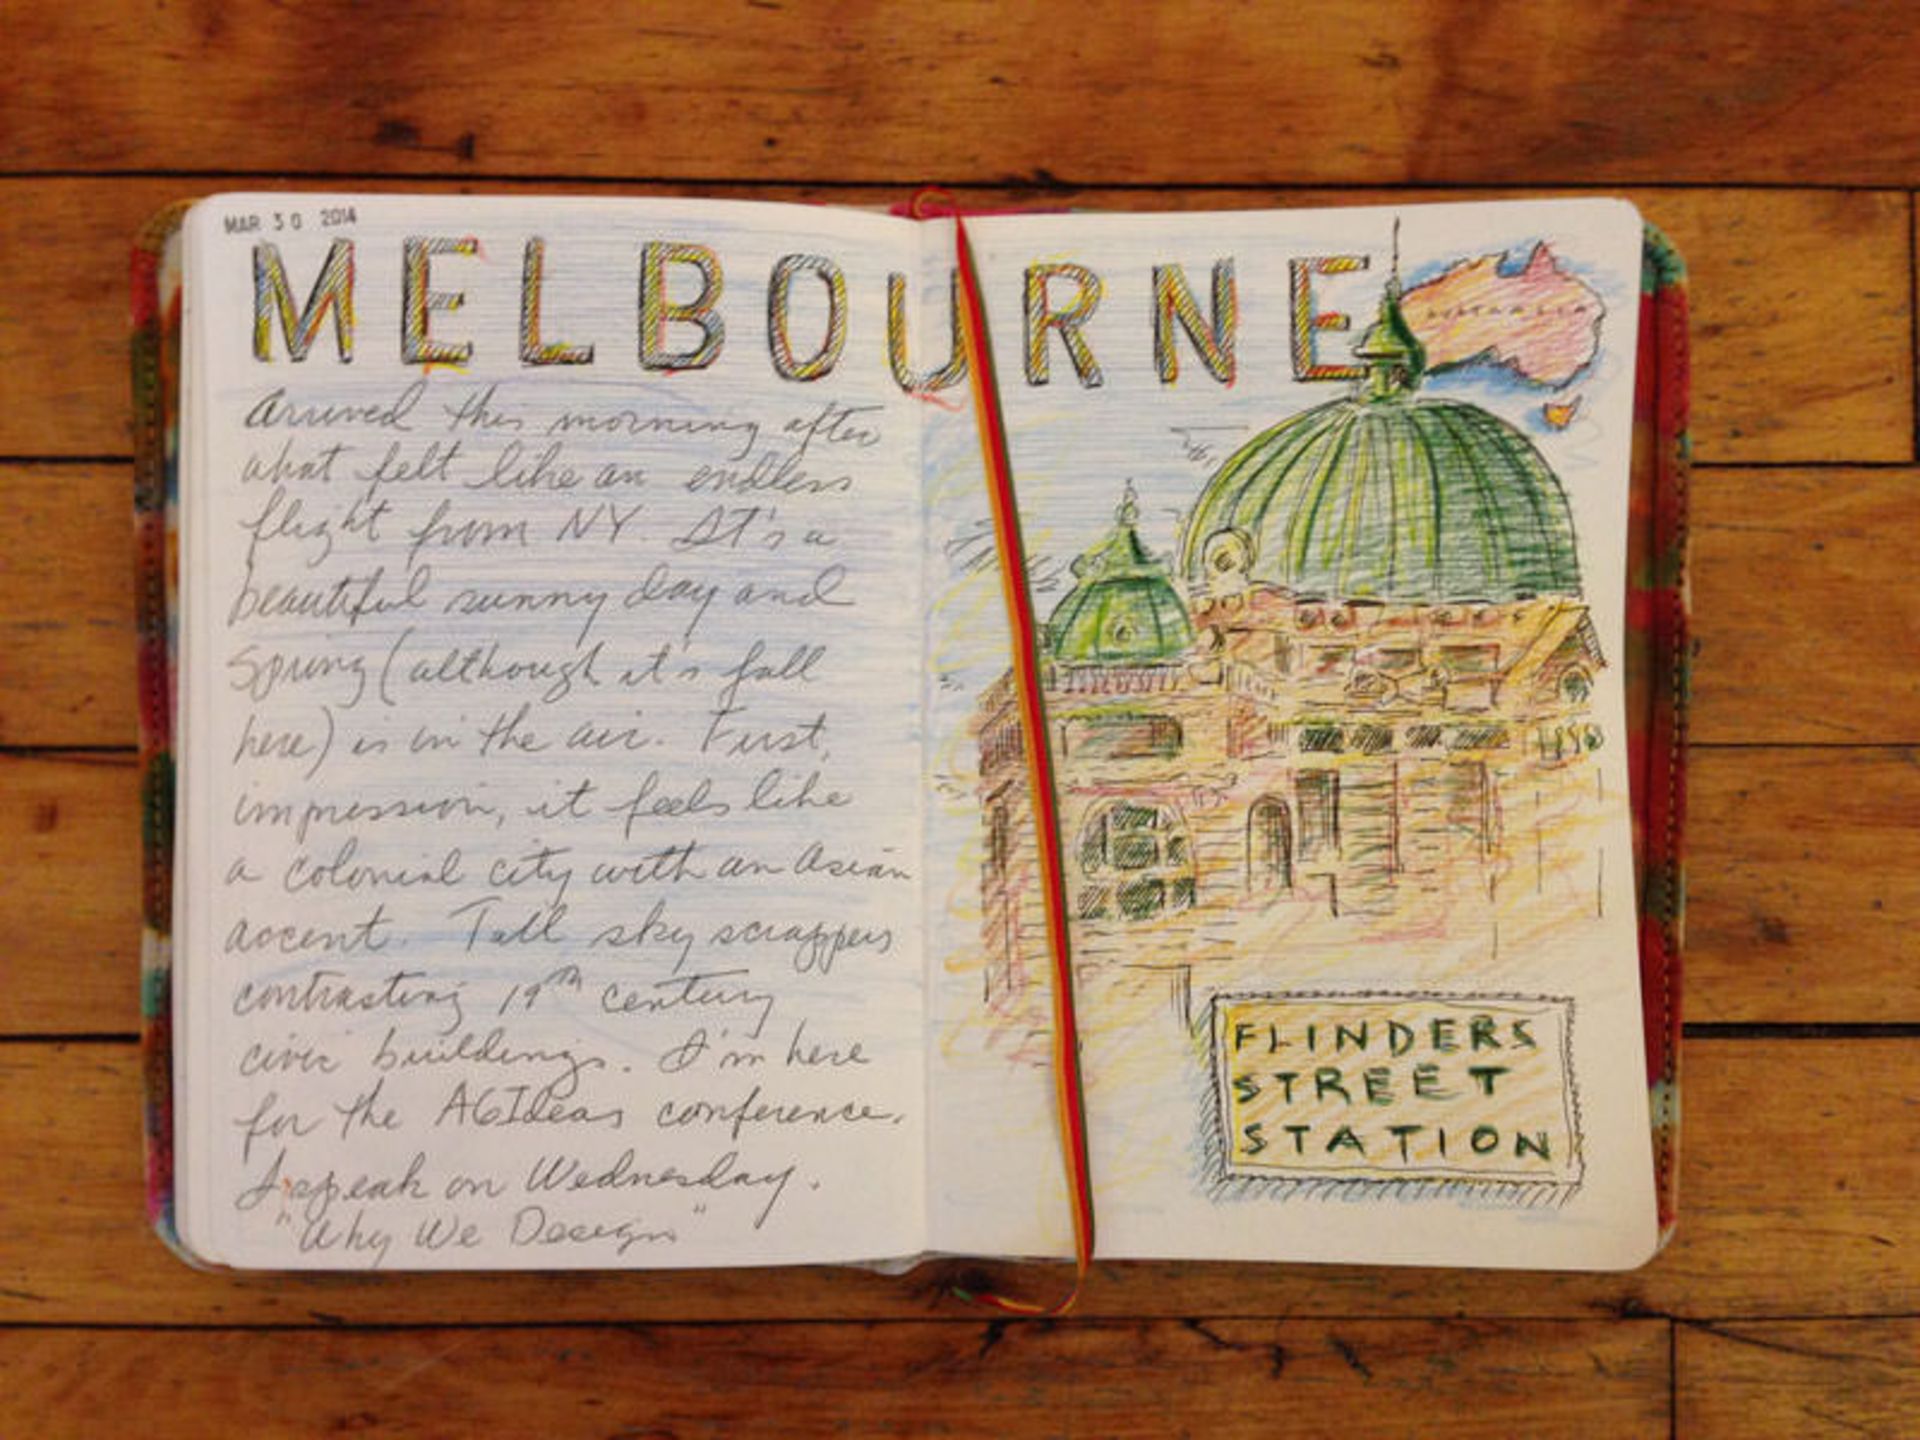 MAR 30 2014
MELBOURNE
AUSTRALIA
Arrived this morning after
what felt like an endless
flight from NY. It's a
beautiful sunny day and
Spring (although it's fall
here) is in the air. First,
impression, it feels like
a colonial city with an Asian
accent. Tall sky scrappers
contrasting 19th century
civic buildings. I'm here
for the AGIdeas conference.
I speak on Wednesday.
"Why We Design"
FLINDERS
STREET
STATION